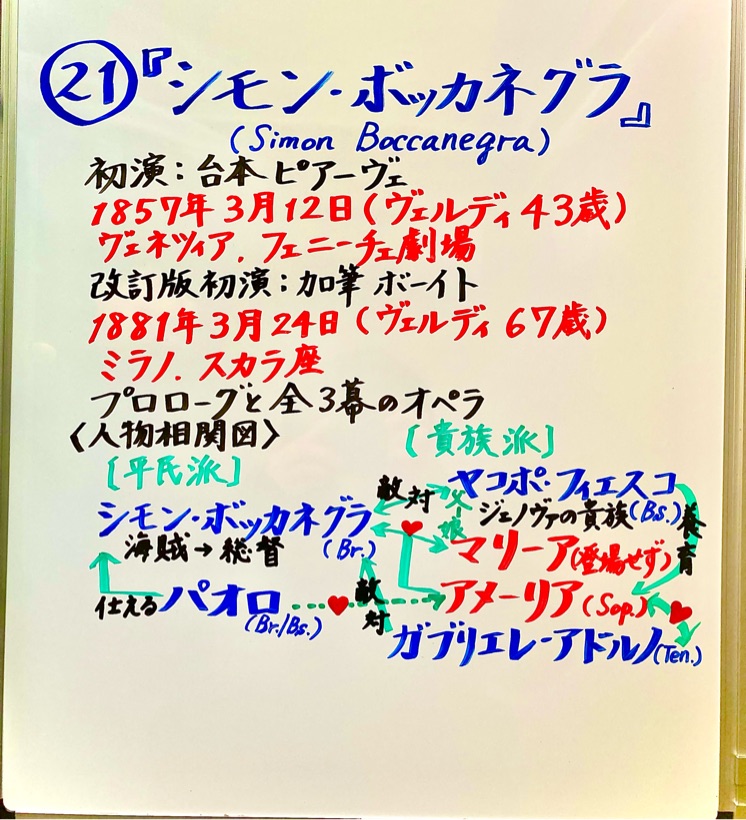 ㉑『シモン・ボッカネグラ』
(Simon Boccanegra)
初演：台本 ピアーヴェ
1857年3月12日(ヴェルディ43歳)
ヴェネツィア．フェニーチェ劇場
改訂版初演：加筆 ボーイト
1881年3月24日(ヴェルディ67歳)
ミラノ．スカラ座
プロローグと全3幕のオペラ
〈人物相関図〉
[貴族派]
[平民派]
敵対
ヤコポ・フィエスコ
父―娘
ジェノヴァの貴族(Bs.)
養育
シモン・ボッカネグラ
海賊→総督
(Br.)
マリーア(登場せず)
仕える
パオロ
(Br./Bs.)
敵対
アメーリア(Sop.)
ガブリエレ・アドルノ(Ten.)